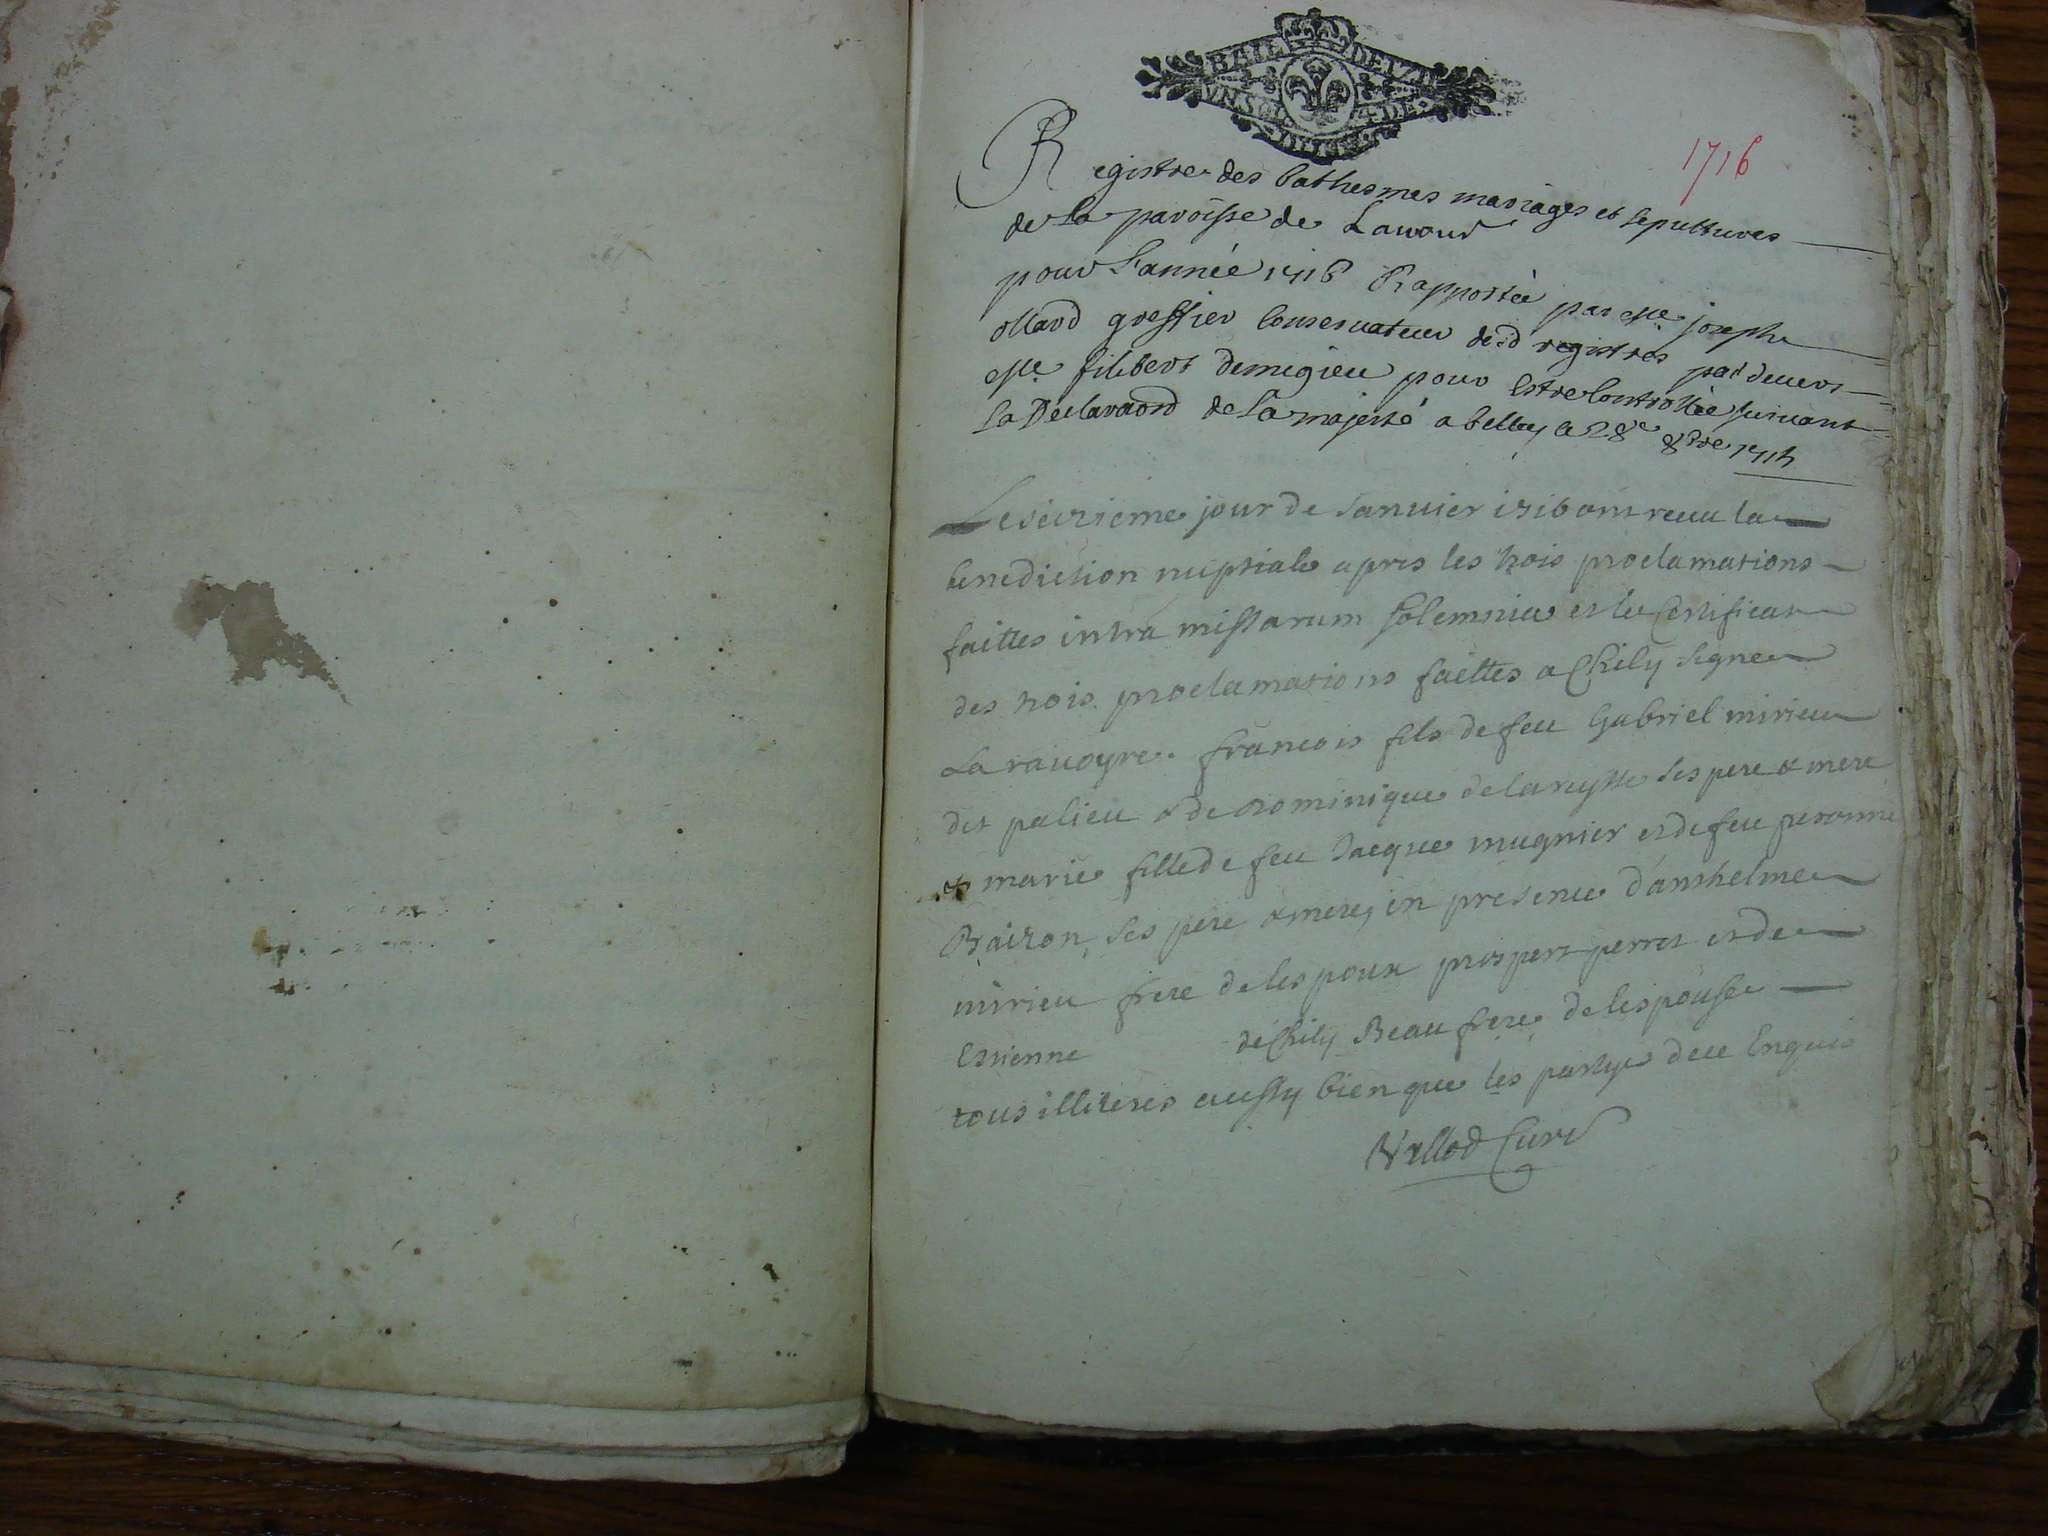 1716
Registre des bathesmes mariages et sepultures
de la paroisse de Lavour
pour L'année 1716 Rapportée par Me joseph
ollard greffier Conservateur desd registres pardevers
Me filibert demigieu pour Estre Controllée suivant
la Declaraond de sa majesté a belley le 28e 8bre 1715
Le seizieme jour de Januier 1716 ont receu la
benediction nuptiale apres les trois proclamations
faittes intra missarum solemnia et le Certificat
des trois proclamations faittes a Chily signe
Laravoyre. francois fils de feu Gabriel mirieu
dit palieu & de dominique delaruytte ses pere & mere
& marie fille de feu Jacque mugnier et de feu peronne
Baizon, ses pere & mere, en presence d'anthelme
mirieu frere de lespoux prospert perret et de
Estienne de Chily Beaufrere de lespouse
tous illiteres aussy bien que les partye de ce Enquis
Vullod Curé